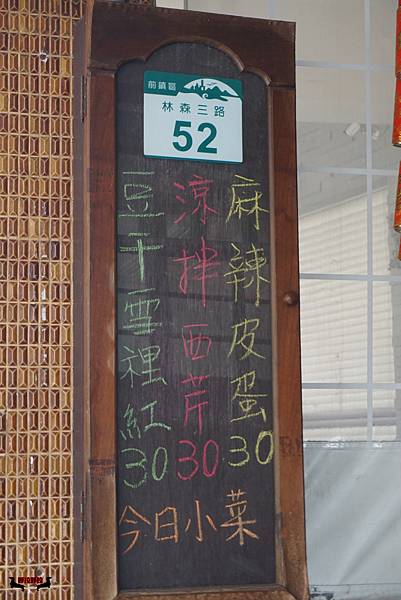 前鎮區
林森三路
52
麻辣皮蛋30
涼拌西芹30
豆干雪裡紅30
今日小菜